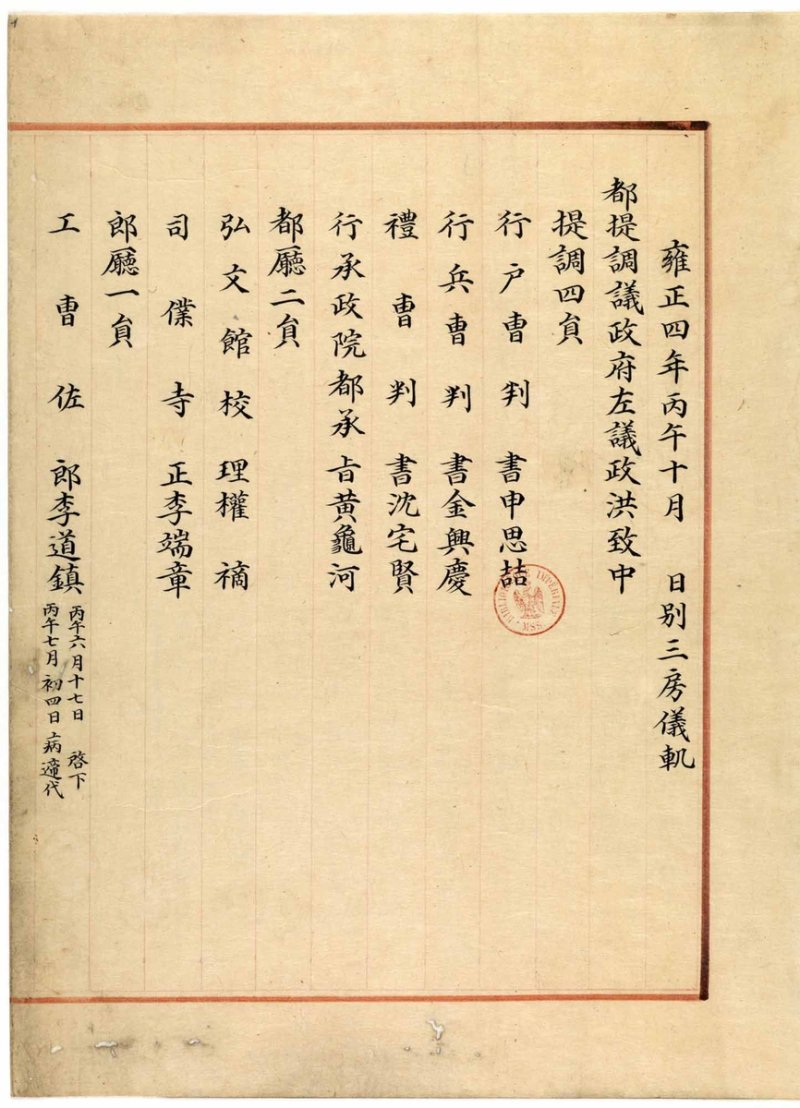 雍正四年丙午十月 日別三房儀軌
都提調議政府左議政洪致中
提調四貟
行戶曺判書申思喆
行兵曺判書金興慶
禮曺判書沈宅賢
行承政院都承旨黃龜河
都廳二貟
弘文館校理權𥛚
司僕寺正李端章
郎廳一貟
工曺佐郎李道鎭
丙午六月十七日 啓下
丙午七月初四日病遞代
BIBLIOTHÈQUE IMPÉRIALE
MSS